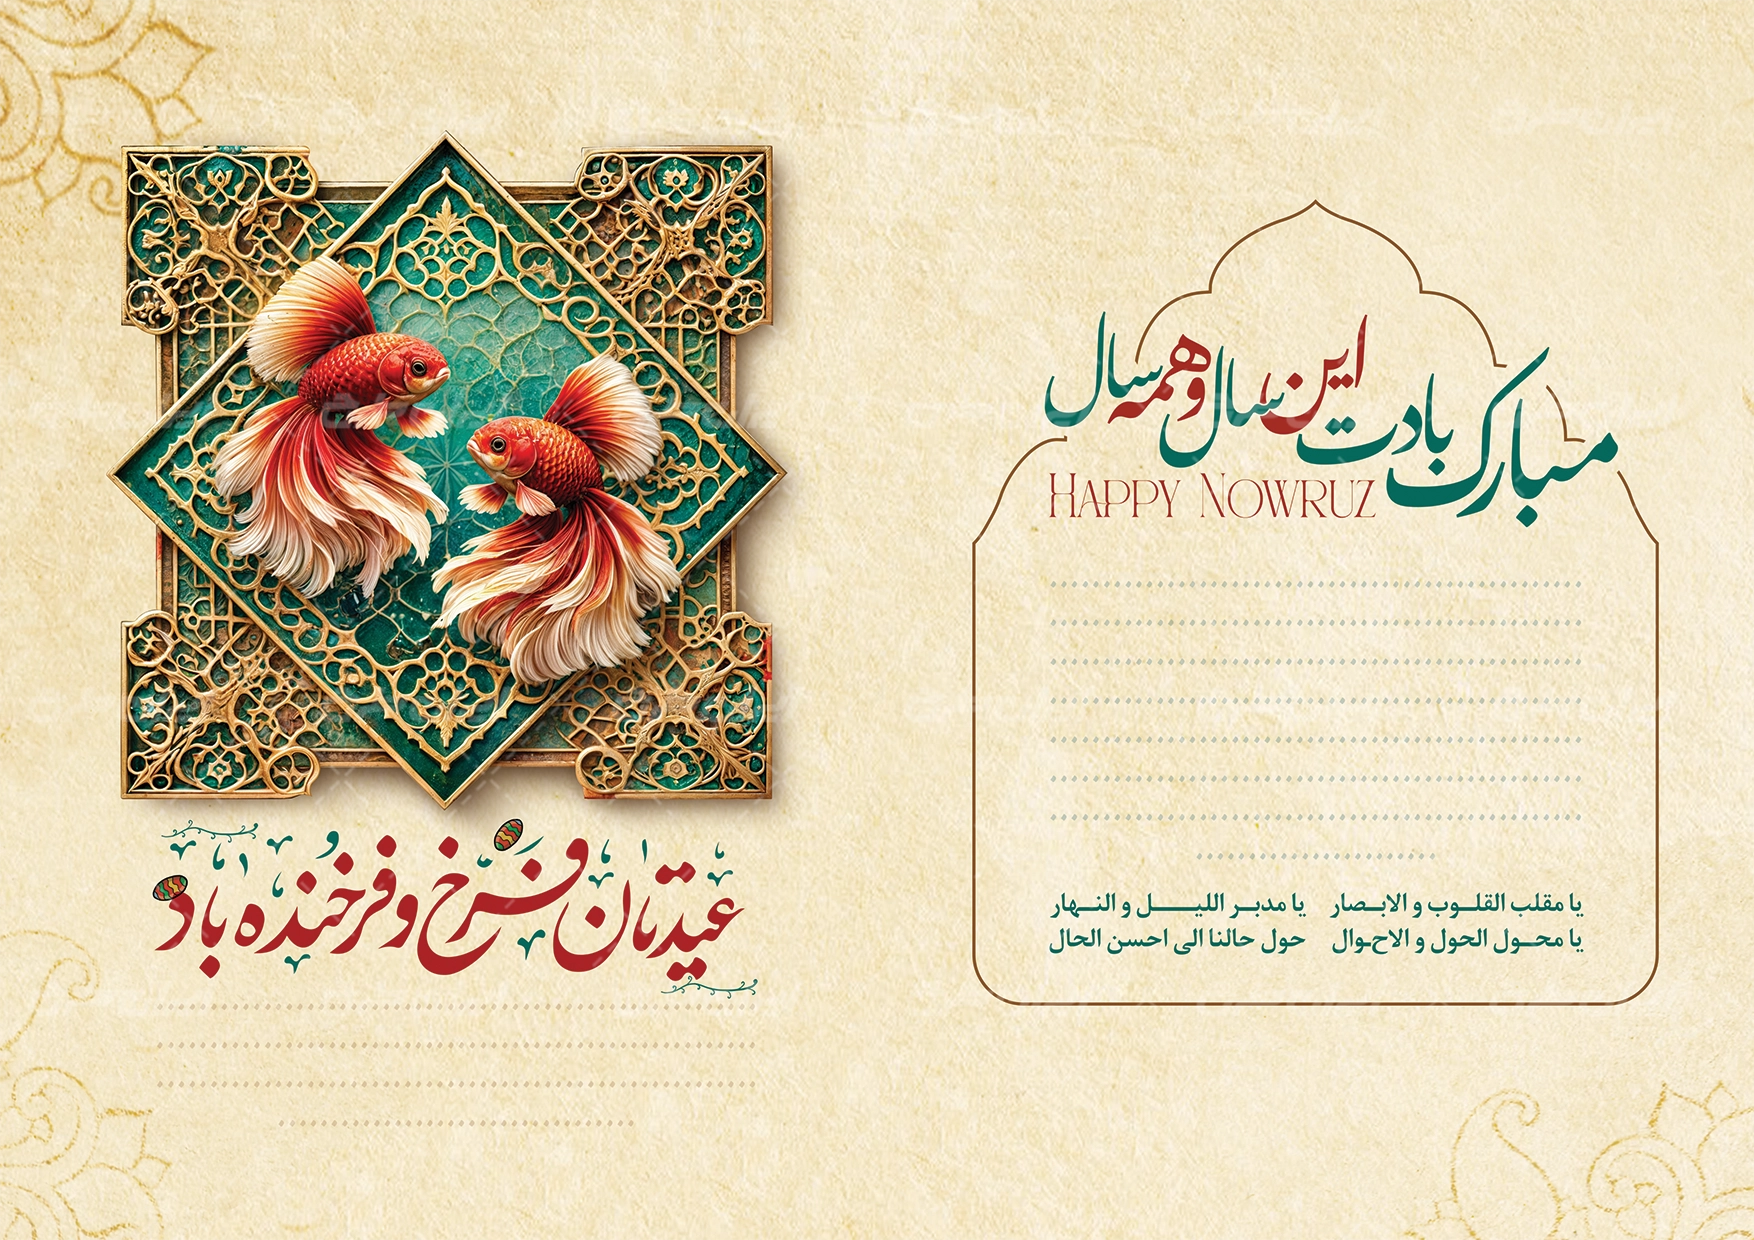 مبارک بادت این سال و همه سال
HAPPY NOWRUZ
یا مقلب القلوب و الابصار یا مدبر اللیل و النهار
یا محول الحول و الاحوال حول حالنا الی احسن الحال
عیدتان فرخ و فرخنده باد